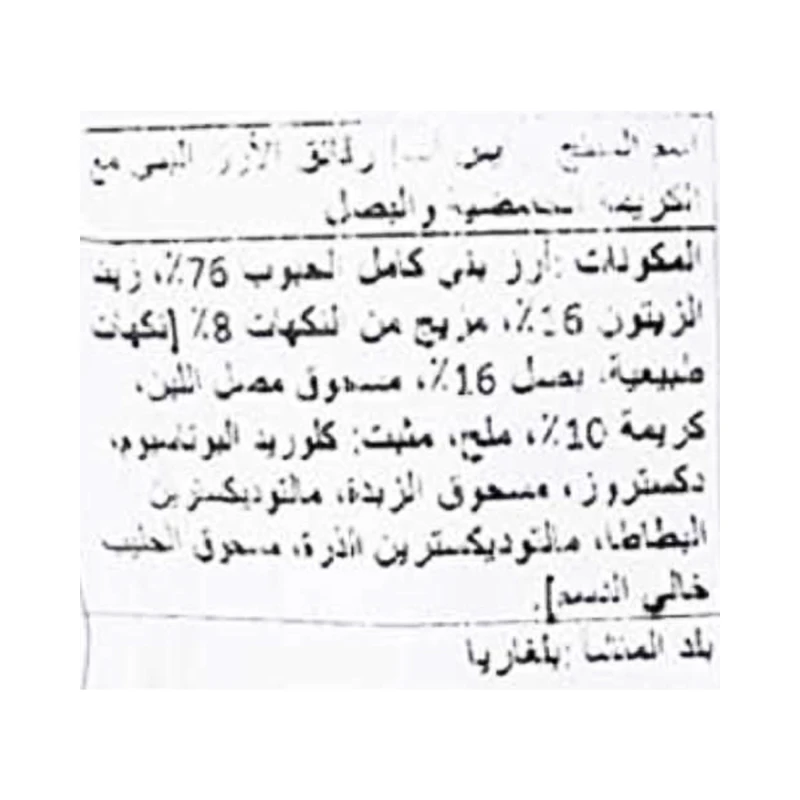 اسم المنتج رقائق الأرز البني مع
الكريمة الحامضية والبصل
المكونات :أرز بني كامل الحبوب 76٪، زيت
الزيتون 16٪، مزيج من النكهات 8٪ [نكهات
طبيعية، بصل 16٪، مسحوق مصل اللبن،
كريمة 10٪، ملح، مثبت: كلوريد البوتاسيوم،
دكستروز، مسحوق الزبدة، مالتوديكسترين
البطاطا، مالتوديكسترين الذرة، مسحوق الحليب
خالي الدسم].
بلد المنشأ :بلغاريا